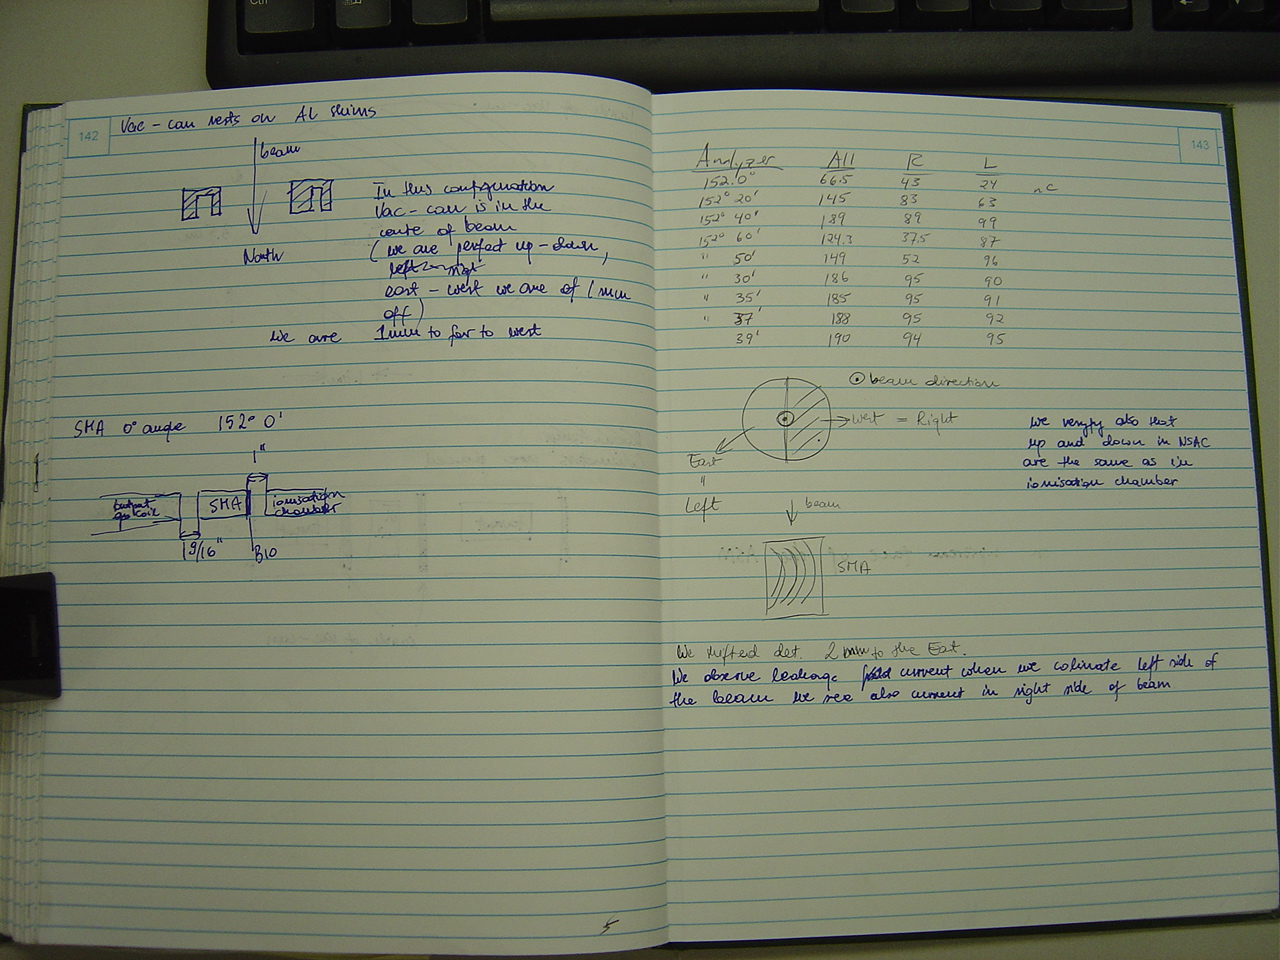 Ctrl
142
Vac-can rests on Al shims
beam
North
In this configuration
Vac-can is in the
cente of beam
(we are perfect up-down,
left-right
east - west we are of 1 mm
off)
We are 1mm to far to west
SMA 0° angle 152° 0'
1"
output
coil
SMA
ionisation
chamber
19/16"
B10
5
143
Analyzer All R L
152.0° 66.5 43 24 nC
152° 20' 145 83 63
152° 40' 189 89 99
152° 60' 124.3 37.5 87
" 50' 149 52 96
" 30' 186 95 90
" 35' 185 95 91
" 37' 188 95 92
39' 190 94 95
beam direction
West = Right
East
"
Left
We veryfy also that
up and down in NSAC
are the same as in
ionisation chamber
beam
SMA
We shifted det. 2 mm to the East.
We observe leakage current when we colimate left side of
the beam we see also current in right side of beam